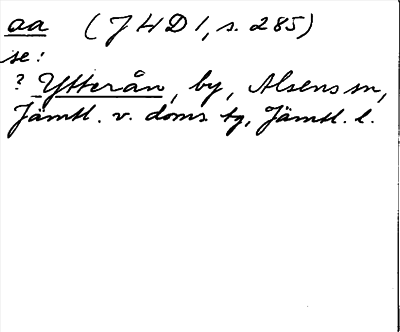 aa (JHD 1, s. 285)
se:
? Ytterån, by, Alsens sn,
Jämtl. v. doms tg, Jämtl. l.